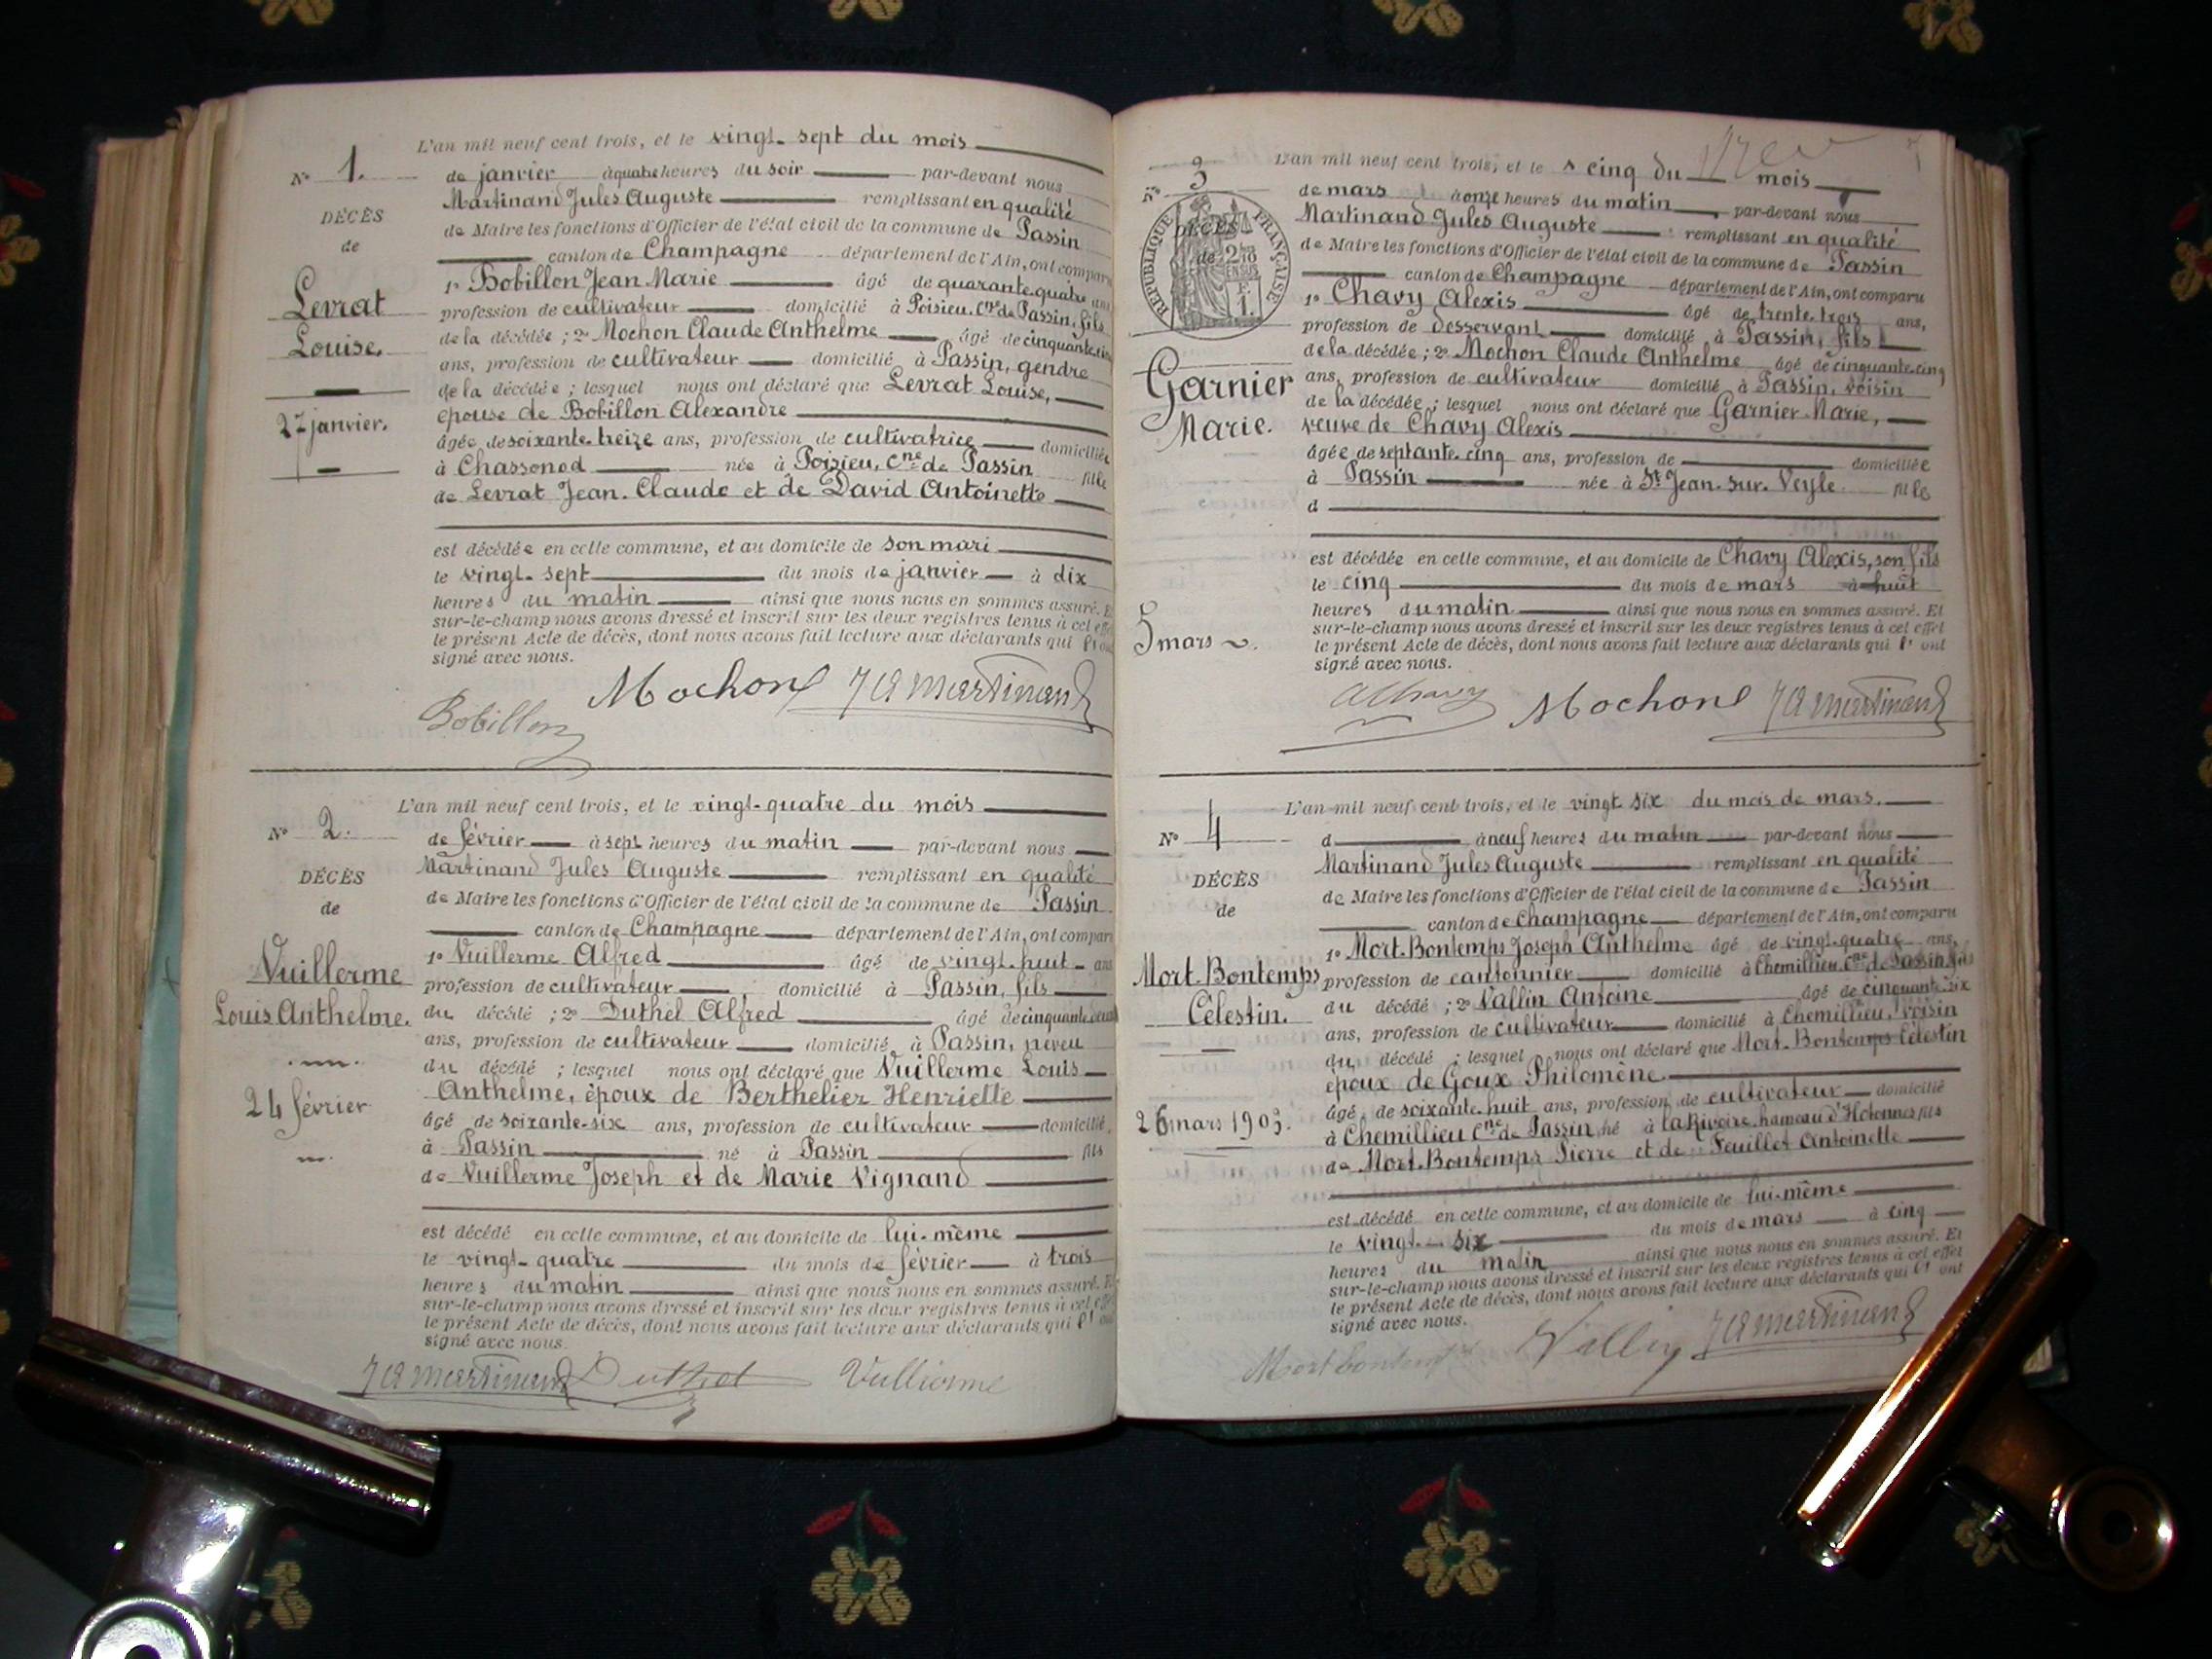 L'an mil neuf cent trois, et le vingt-sept du mois
N° 1.
de janvier à quatre heures du soir par-devant nous
Martinand Jules Auguste remplissant en qualité
DÉCÈS
de Maire les fonctions d'Officier de l'état civil de la commune de Passin
de
canton de Champagne département de l'Ain, ont comparu
1° Bobillon Jean Marie âgé de quarante-quatre ans
Levrat
profession de cultivateur domicilié à Poisieu, Cne de Passin, fils
Louise.
de la décédée ; 2° Mochon Claude Anthelme âgé de cinquante-cinq
ans, profession de cultivateur domicilié à Passin, gendre
de la décédée ; lesquel nous ont déclaré que Levrat Louise,
27 janvier.
épouse de Bobillon Alexandre
âgée de soixante-treize ans, profession de cultivatrice domiciliée
à Chassonod née à Poisieu, Cne de Passin fille
de Levrat Jean-Claude et de David Antoinette
est décédée en cette commune, et au domicile de son mari
le vingt-sept du mois de janvier à dix
heures du matin ainsi que nous nous en sommes assuré. Et
sur-le-champ nous avons dressé et inscrit sur les deux registres tenus à cet effet
le présent Acte de décès, dont nous avons fait lecture aux déclarants qui l'ont
signé avec nous.
Bobillon Mochon JA Martinand
L'an mil neuf cent trois, et le vingt-quatre du mois
N° 2.
de février à sept heures du matin par-devant nous
Martinand Jules Auguste remplissant en qualité
DÉCÈS
de Maire les fonctions d'Officier de l'état civil de la commune de Passin
de
canton de Champagne département de l'Ain, ont comparu
1° Vuillerme Alfred âgé de vingt-huit ans
Vuillerme
profession de cultivateur domicilié à Passin, fils
Louis Anthelme.
du décédé ; 2° Duthel Alfred âgé de cinquante
ans, profession de cultivateur domicilié à Passin, neveu
du décédé ; lesquel nous ont déclaré que Vuillerme Louis
24 février
Anthelme, époux de Berthelier Henriette
âgé de soixante-six ans, profession de cultivateur domicilié,
à Passin né à Passin fils
de Vuillerme Joseph et de Marie Vignand
est décédé en cette commune, et au domicile de lui-même
le vingt-quatre du mois de février à trois
heures du matin ainsi que nous nous en sommes assuré. Et
sur-le-champ nous avons dressé et inscrit sur les deux registres tenus à cet effet
le présent Acte de décès, dont nous avons fait lecture aux déclarants qui l'ont
signé avec nous.
JA Martinand Duthel Vullierme
L'an mil neuf cent trois, et le cinq du mois
N° 3
de mars à onze heures du matin par-devant nous
RÉPUBLIQUE FRANÇAISE
Martinand Jules Auguste remplissant en qualité
DÉCÈS
de Maire les fonctions d'Officier de l'état civil de la commune de Passin
de
canton de Champagne département de l'Ain, ont comparu
1° Chavy Alexis âgé de trente-trois ans,
profession de desservant domicilié à Passin, fils
de la décédée ; 2° Mochon Claude Anthelme âgé de cinquante-cinq
Garnier
ans, profession de cultivateur domicilié à Passin, voisin
de la décédée ; lesquel nous ont déclaré que Garnier Marie,
Marie.
veuve de Chavy Alexis
âgée de septante-cinq ans, profession de domiciliée
à Passin née à St Jean-sur-Veyle fille
d
est décédée en cette commune, et au domicile de Chavy Alexis, son fils
le cinq du mois de mars à huit
5 mars
heures du matin ainsi que nous nous en sommes assuré. Et
sur-le-champ nous avons dressé et inscrit sur les deux registres tenus à cet effet
le présent Acte de décès, dont nous avons fait lecture aux déclarants qui l'ont
signé avec nous.
A Chavy Mochon JA Martinand
L'an mil neuf cent trois, et le vingt six du mois de mars.
N° 4
d à neuf heures du matin par-devant nous
Martinand Jules Auguste remplissant en qualité
DÉCÈS
de Maire les fonctions d'Officier de l'état civil de la commune de Passin
de
canton de Champagne département de l'Ain, ont comparu
1° Mort-Bontemps Joseph Anthelme âgé de vingt-quatre ans,
Mort-Bontemps
profession de cantonnier domicilié à Chemillieu Cne de Passin, fils
Célestin.
du décédé ; 2° Vallin Antoine âgé de cinquante-six
ans, profession de cultivateur domicilié à Chemillieu, voisin
du décédé ; lesquel nous ont déclaré que Mort-Bontemps Célestin
époux de Goux Philomène.
26 mars 1903.
âgé de soixante-huit ans, profession de cultivateur domicilié
à Chemillieu Cne de Passin né à la Rivoire, hameau d'Hotonnes fils
de Mort-Bontemps Pierre et de Feuillet Antoinette
est décédé en cette commune, et au domicile de lui-même
le vingt-six du mois de mars à cinq
heures du matin ainsi que nous nous en sommes assuré. Et
sur-le-champ nous avons dressé et inscrit sur les deux registres tenus à cet effet
le présent Acte de décès, dont nous avons fait lecture aux déclarants qui l'ont
signé avec nous.
Mort bontemps Vallin JA Martinand